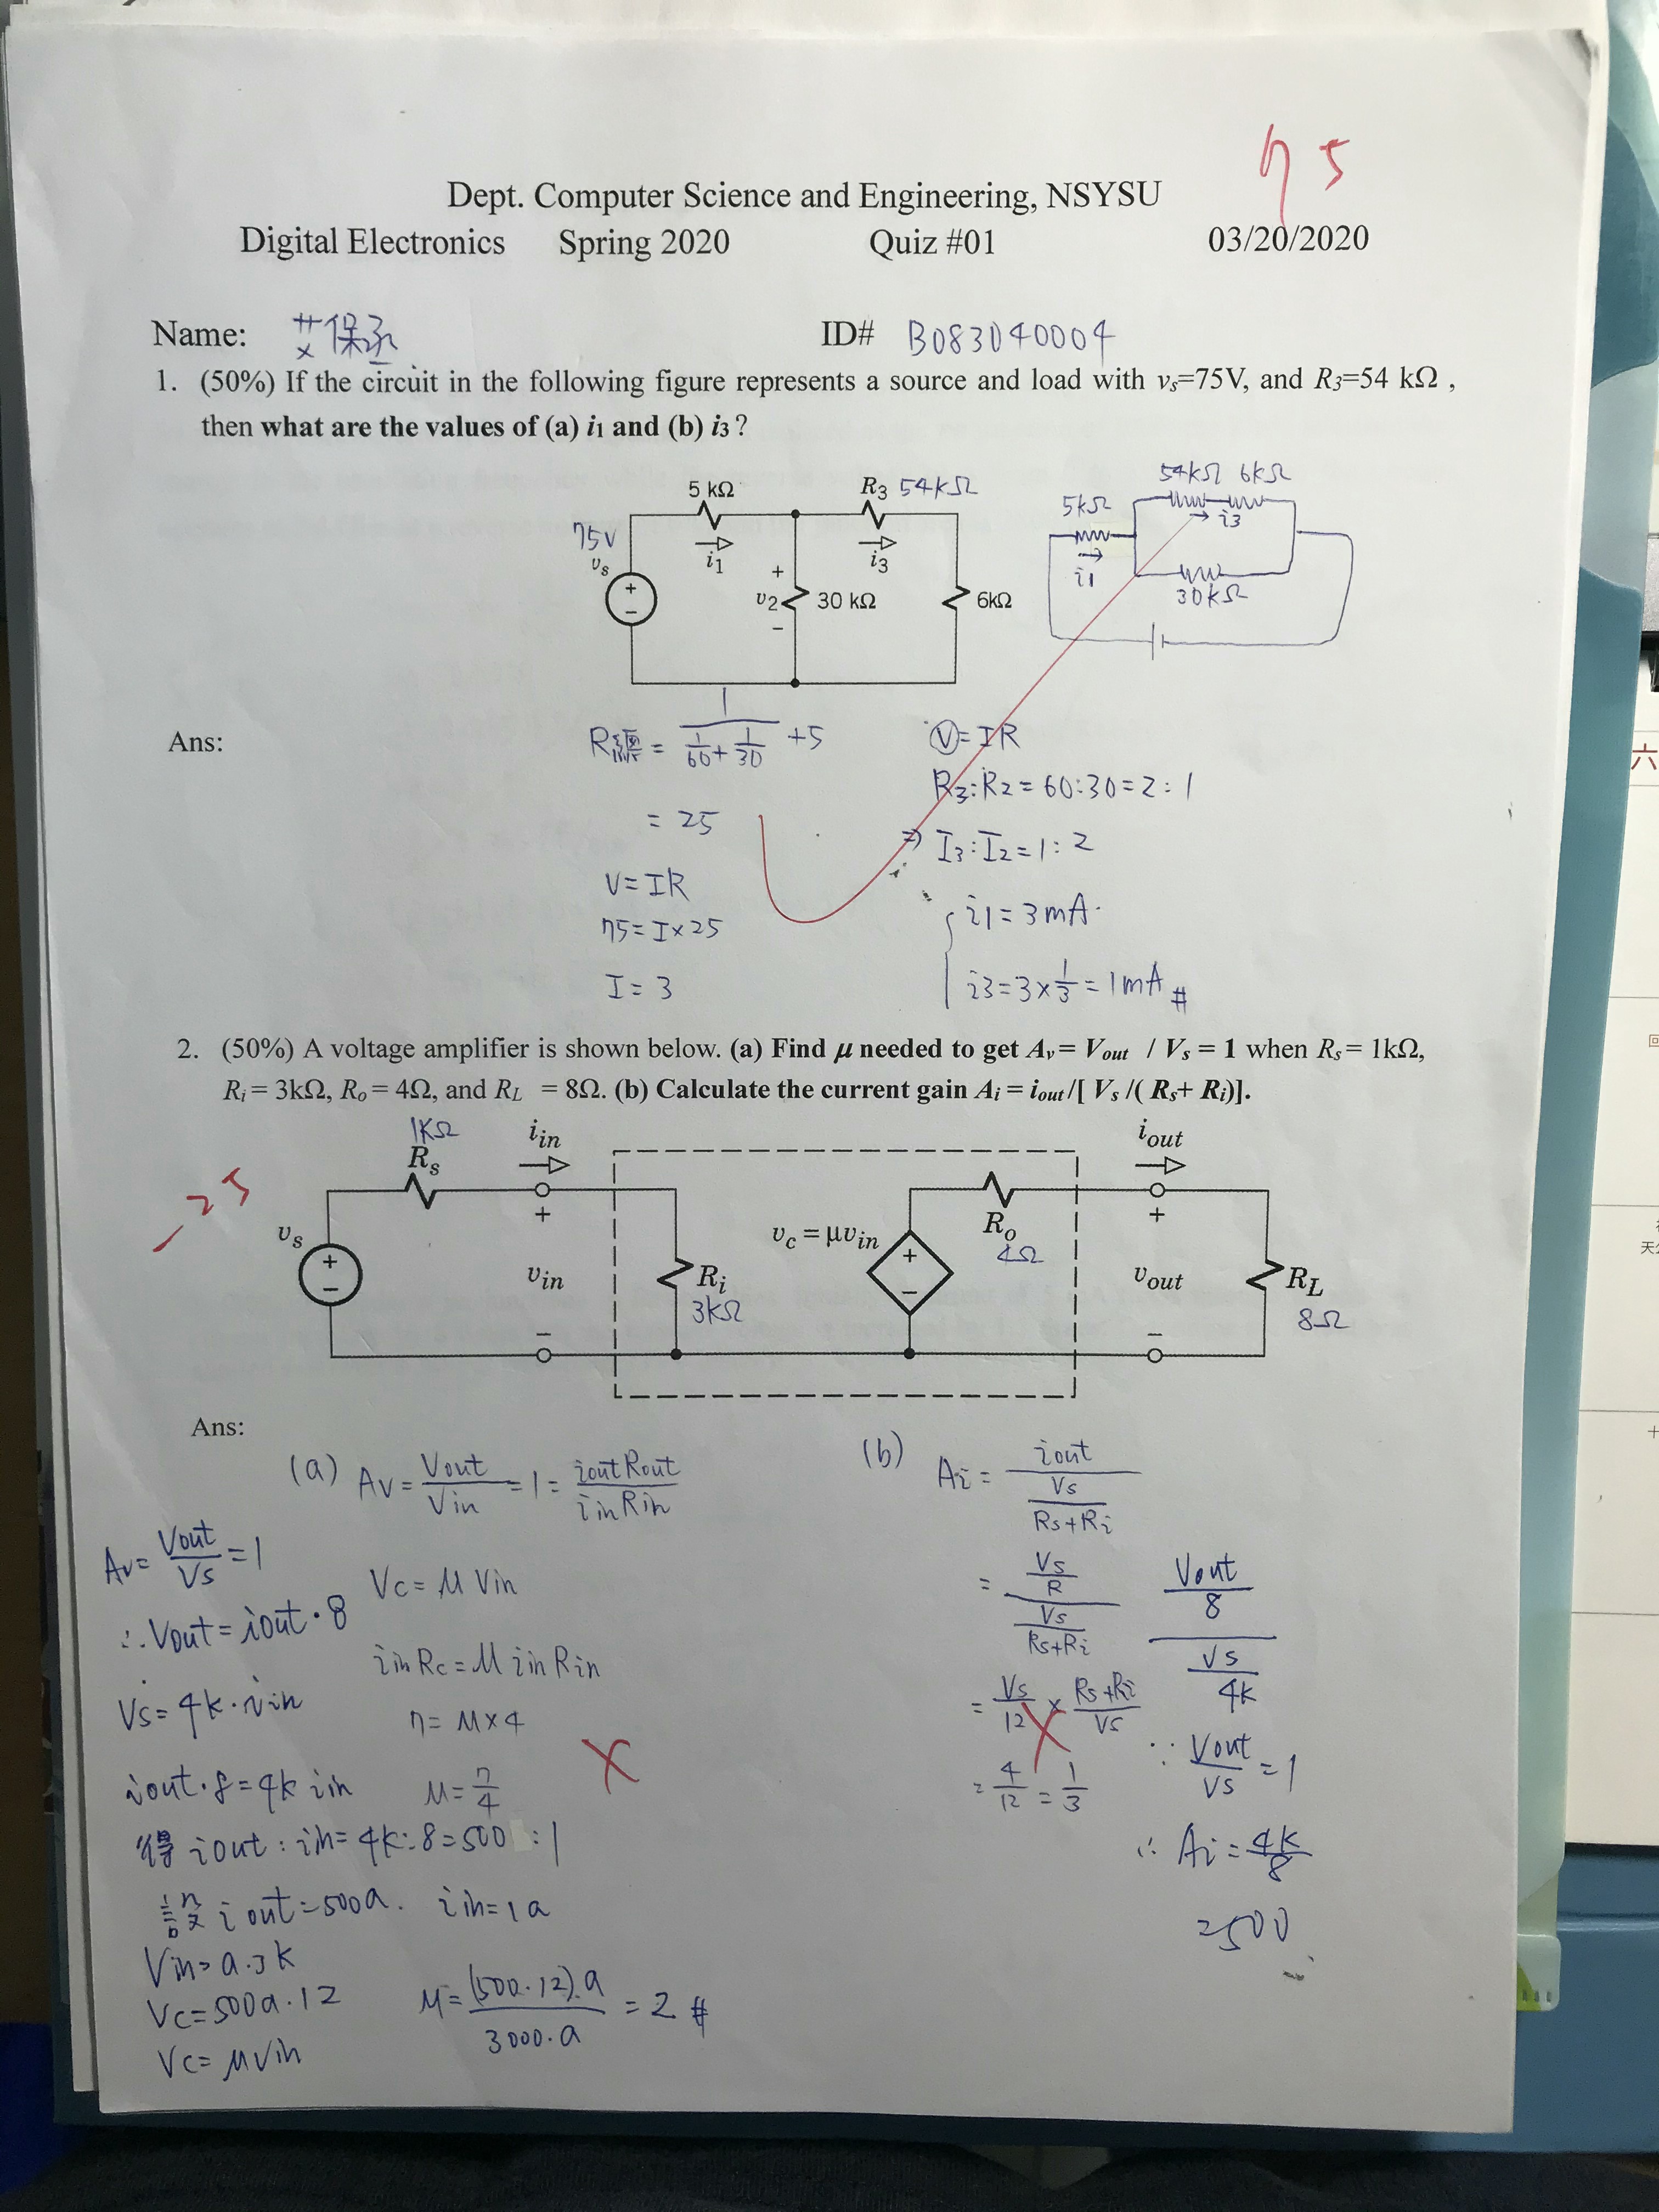 75
Dept. Computer Science and Engineering, NSYSU
Digital Electronics Spring 2020 Quiz #01 03/20/2020
Name: 艾保承 ID# B083040004
1. (50%) If the circuit in the following figure represents a source and load with vs=75V, and R3=54 kΩ ,
then what are the values of (a) i1 and (b) i3 ?
5 kΩ R3 54kΩ
75V
vs
+
−
i1
i3
+
v2
−
30 kΩ
6kΩ
54kΩ 6kΩ
5kΩ
i3
i1
30kΩ
Ans:
R總 = 1/(1/60 + 1/30) + 5
= 25
V=IR
75=I×25
I=3
V=IR
R3:R2=60:30=2:1
⇒ I3:I2=1:2
i1=3mA
i3=3×1/3=1mA #
2. (50%) A voltage amplifier is shown below. (a) Find μ needed to get Av= Vout / Vs = 1 when Rs= 1kΩ,
Ri= 3kΩ, Ro= 4Ω, and RL = 8Ω. (b) Calculate the current gain Ai = iout/[ Vs /( Rs+ Ri)].
−25
1KΩ
Rs
iin
iout
vs
+
−
+
vin
−
Ri
3kΩ
vc = μvin
+
−
Ro
4Ω
+
vout
−
RL
8Ω
Ans:
(a) Av= Vout/Vin =1= iout Rout/iin Rin
Vc= μ Vin
iin Rc= μ iin Rin
7= μ×4
μ= 7/4
Av= Vout/Vs =1
∴ Vout= iout·8
Vs= 4k·iin
iout·8=4k iin
得 iout : iin= 4k:8=500 :1
設 iout=500a. iin=1a
Vin=a.3k
Vc=500a·12
Vc= μVin
μ= (500·12).a/3000.a = 2 #
(b) Ai = iout/(Vs/(Rs+Ri))
= (Vs/R)/(Vs/(Rs+Ri))
= Vs/12 × (Rs+Ri)/Vs
= 4/12 = 1/3
(Vout/8)/(Vs/4k)
∵ Vout/Vs =1
∴ Ai = 4k/8
=500
六